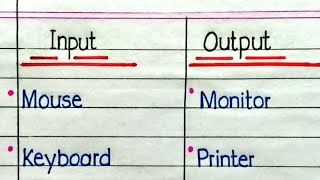 Input Output
Mouse Monitor
Keyboard Printer